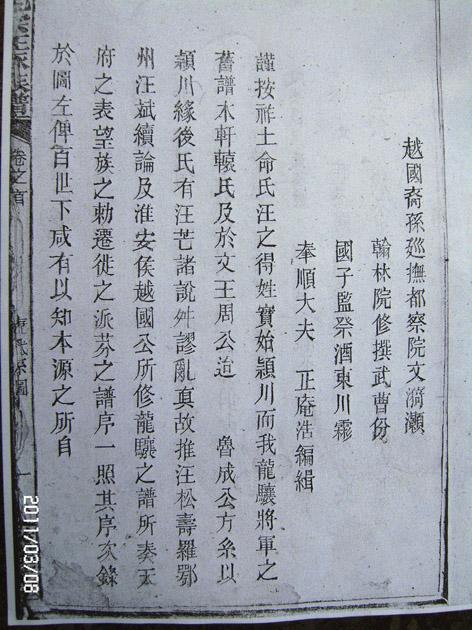 越國裔孫廵撫都察院文漪灝
翰林院修撰武曹份
國子監祭酒東川霦
奉順大夫 正庵浩編緝
謹按祥土命氏汪之得姓實始潁川而我龍驤將軍之
舊譜本軒轅氏及於文王周公迨 魯成公方糸以
潁川緣後氏有汪芒諸說舛謬亂真故推汪松壽羅鄂
州汪斌續論及淮安侯越國公所修龍驤之譜所奏天
府之表望族之勅遷徙之派芬之譜序一照其序次錄
於圖左俾百世下咸有以知本源之所自
卷之首
一
2011/03/08